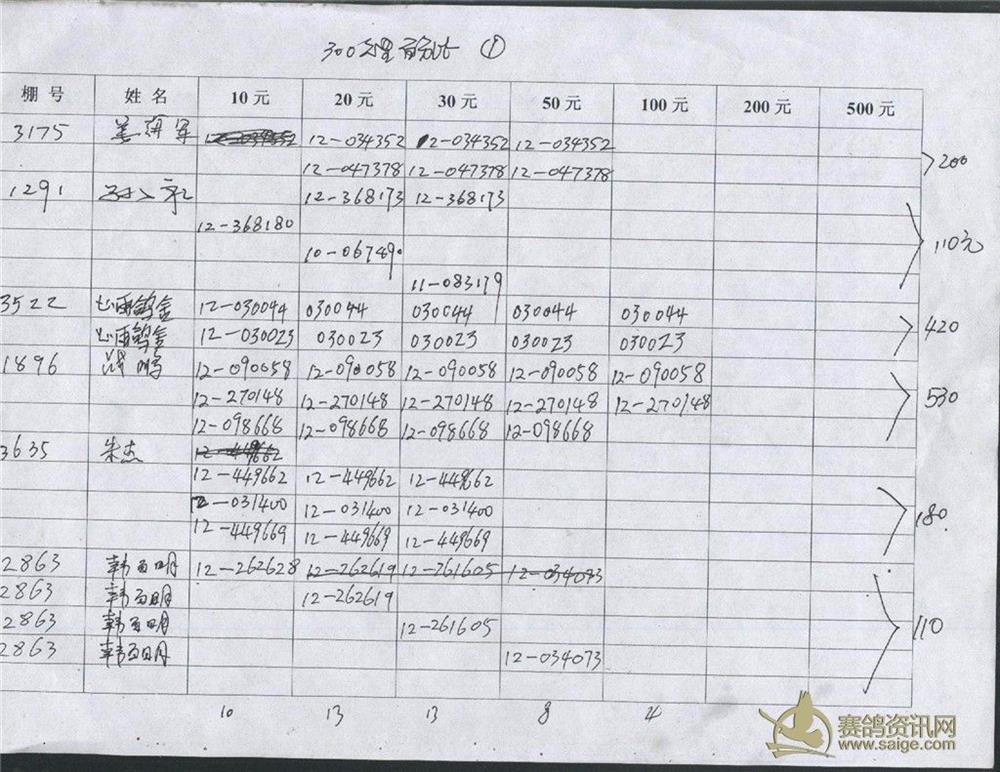 300公里百分比 ①
棚号 姓名 10元 20元 30元 50元 100元 200元 500元
3175 12-034352 12-034352 12-034352 12-034352
12-047378 12-047378 12-047378 200
1291 12-368173 12-368173
12-368180 110元
10-067490
11-083179
3522 12-030044 030044 030044 030044 030044
12-030023 030023 030023 030023 030023 420
1896 12-090058 12-090058 12-090058 12-090058 12-090058
12-270148 12-270148 12-270148 12-270148 12-270148 530
12-098668 12-098668 12-098668 12-098668
3635 朱杰 12-449662
12-449662 12-449662 12-449662
12-031400 12-031400 12-031400 180
12-449669 12-449669 12-449669
2863 韩百明 12-262628 12-262619 12-261605 12-034073
2863 韩百明 12-262619
2863 韩百明 12-261605 110
2863 韩百明 12-034073
10 13 13 8 4
赛鸽资讯网
www.saige.com